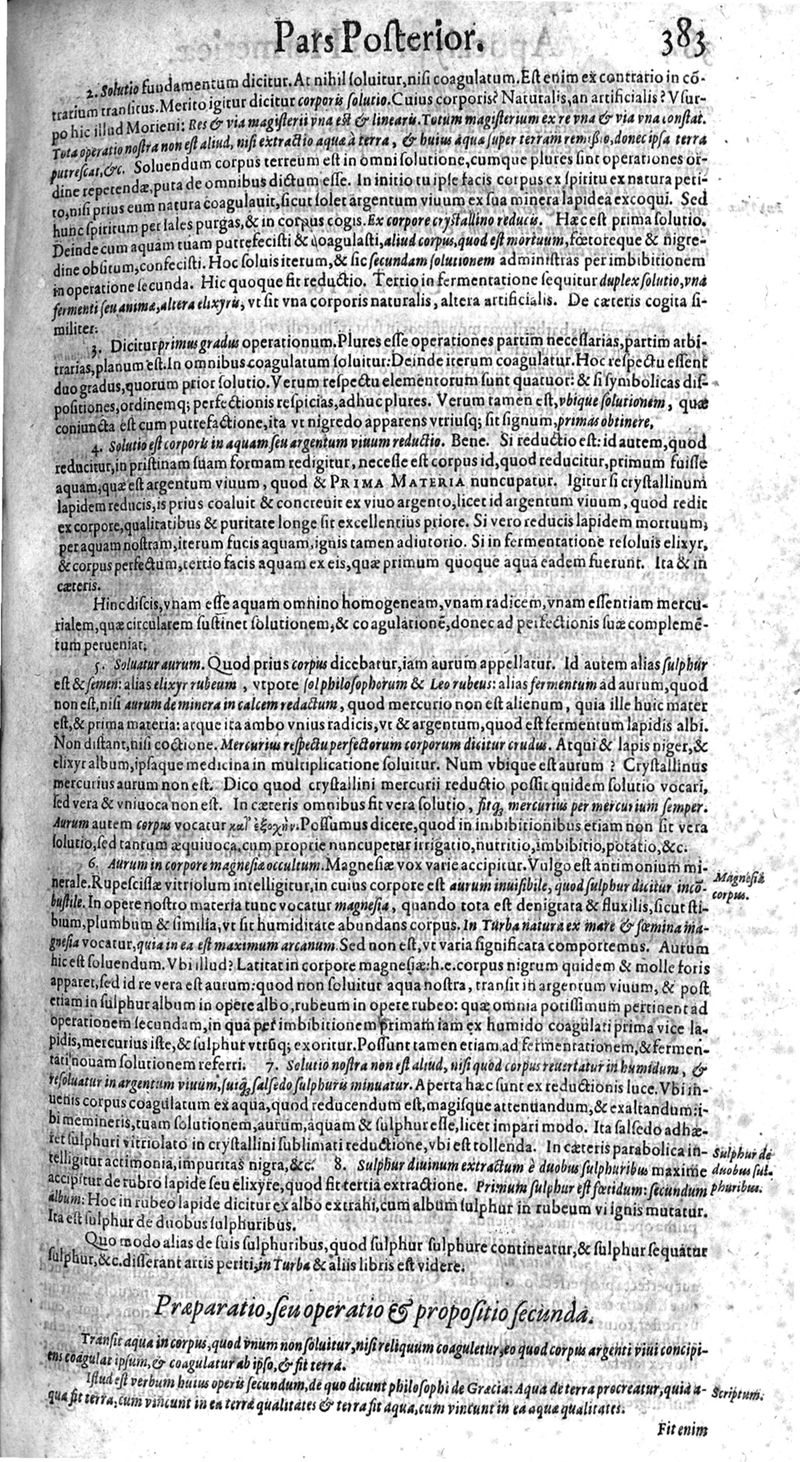 Pars Posterior. 383
2. Solutio fundamentum dicitur. At nihil soluitur, nisi coagulatum. Est enim ex contrario in cō-
trarium transitus. Merito igitur dicitur corporis solutio. Cuius corporis? Naturalis, an artificialis? Vsur-
po hic illud Morieni: Res & via magisterii vna est & linearis. Totum magisterium ex re vna & via vna constat.
Tota operatio nostra non est aliud, nisi extractio aquæ à terra, & huius aquæ super terram remissio, donec ipsa terra
putrescat, &c. Soluendum corpus terreum est in omni solutione, cumque plures sint operationes or-
dine repetendæ, puta de omnibus dictum esse. In initio tu ipse facis corpus ex spiritu ex natura peti-
to, nisi prius eum natura coagulauit, sicut solet argentum viuum ex sua minera lapidea excoqui. Sed
hunc spiritum per sales purgas, & in corpus cogis. Ex corpore crystallino reducis. Hæc est prima solutio.
Deinde cum aquam tuam putrefecisti & coagulasti, aliud corpus, quod est mortuum, fœtoreque & nigre-
dine obsitum, confecisti. Hoc soluis iterum, & sic secundam solutionem administras per imbibitionem
in operatione secunda. Hic quoque fit reductio. Tertio in fermentatione sequitur duplex solutio, vna
fermenti seu animæ, altera elixyris, vt sit vna corporis naturalis, altera artificialis. De cæteris cogita si-
militer.
3. Dicitur primus gradus operationum. Plures esse operationes partim necessarias, partim arbi-
trarias, planum est. In omnibus coagulatum soluitur: Deinde iterum coagulatur. Hoc respectu essent
duo gradus, quorum prior solutio. Verum respectu elementorum sunt quatuor: & si symbolicas dis-
positiones, ordinemq; perfectionis respicias, adhuc plures. Verum tamen est, vbique solutionem, quæ
coniuncta est cum putrefactione, ita vt nigredo apparens vtriusq; sit signum, primas obtinere.
4. Solutio est corporis in aquam seu argentum viuum reductio. Bene. Si reductio est: id autem, quod
reducitur, in pristinam suam formam redigitur, necesse est corpus id, quod reducitur, primum fuisse
aquam, quæ est argentum viuum, quod & PRIMA MATERIA nuncupatur. Igitur si crystallinum
lapidem reducis, is prius coaluit & concreuit ex viuo argento, licet id argentum viuum, quod redit
ex corpore, qualitatibus & puritate longe sit excellentius priore. Si vero reducis lapidem mortuum,
per aquam nostram, iterum facis aquam, ignis tamen adiutorio. Si in fermentatione resoluis elixyr,
& corpus perfectum, tertio facis aquam ex eis, quæ primum quoque aqua eadem fuerunt. Ita & in
cæteris.
Hinc discis, vnam esse aquam omnino homogeneam, vnam radicem, vnam essentiam mercu-
rialem, quæ circularem sustinet solutionem, & coagulationē, donec ad perfectionis suæ complemē-
tum perueniat.
5. Soluatur aurum. Quod prius corpus dicebatur, iam aurum appellatur. Id autem alias sulphur
est & semen: alias elixyr rubeum, vtpote sol philosophorum & Leo rubeus: alias fermentum ad aurum, quod
non est, nisi aurum de minera in calcem redactum, quod mercurio non est alienum, quia ille huic mater
est, & prima materia: atque ita ambo vnius radicis, vt & argentum, quod est fermentum lapidis albi.
Non distant, nisi coctione. Mercurius respectu perfectorum corporum dicitur crudus. Atqui & lapis niger, &
elixyr album, ipsaque medicina in multiplicatione soluitur. Num vbique est aurum? Crystallinus
mercurius aurum non est. Dico quod crystallini mercurii reductio possit quidem solutio vocari,
sed vera & vniuoca non est. In cæteris omnibus fit vera solutio, fitq; mercurius per mercurium semper.
Aurum autem corpus vocatur κατ' ἐξοχήν. Possumus dicere, quod in imbibitionibus etiam non sit vera
solutio, sed tantum æquiuoca, cum proprie nuncupetur irrigatio, nutritio, imbibitio, potatio, &c.
6. Aurum in corpore magnesiæ occultum. Magnesiæ vox varie accipitur. Vulgo est antimonium mi-
nerale. Rupescissæ vitriolum intelligitur, in cuius corpore est aurum inuisibile, quod sulphur dicitur incō-
bustile. In opere nostro materia tunc vocatur magnesia, quando tota est denigrata & fluxilis, sicut sti-
bium, plumbum & similia, vt sit humiditate abundans corpus. In Turba natura ex mare & fœmina ma-
gnesia vocatur, quia in ea est maximum arcanum. Sed non est, vt varia significata comportemus. Aurum
hic est soluendum. Vbi illud? Latitat in corpore magnesiæ: h. e. corpus nigrum quidem & molle foris
apparet, sed id re vera est aurum: quod non soluitur aqua nostra, transit in argentum viuum, & post
etiam in sulphur album in opere albo, rubeum in opere rubeo: quæ omnia potissimum pertinent ad
operationem secundam, in qua per imbibitionem primam iam ex humido coagulati prima vice la-
pidis, mercurius iste, & sulphur vtrūq; exoritur. Possunt tamen etiam ad fermentationem, & fermen-
tati nouam solutionem referri. 7. Solutio nostra non est aliud, nisi quod corpus reuertatur in humidum, &
resoluatur in argentum viuum, suiq; salsedo sulphuris minuatur. Aperta hæc sunt ex reductionis luce. Vbi in-
uenis corpus coagulatum ex aqua, quod reducendum est, magisque attenuandum, & exaltandum: i-
bi memineris, tuam solutionem, aurum, aquam & sulphur esse, licet impari modo. Ita salsedo adhæ-
ret sulphuri vitriolato in crystallini sublimati reductione, vbi est tollenda. In cæteris parabolica in-
telligitur actimonia, impuritas nigra, &c. 8. Sulphur diuinum extractum è duobus sulphuribus maxime
accipitur de rubro lapide seu elixyre, quod fit tertia extractione. Primum sulphur est fœtidum: secundum
album: Hoc in rubeo lapide dicitur ex albo extrahi, cum album sulphur in rubeum vi ignis mutatur.
Ita est sulphur de duobus sulphuribus.
Quo modo alias de suis sulphuribus, quod sulphur sulphure contineatur, & sulphur sequatur
sulphur, &c. disserant artis periti, in Turba & aliis libris est videre.
Magnesiæ
corpus.
Sulphur de
duobus sul-
phuribus.
Præparatio, seu operatio & propositio secunda.
Transit aqua in corpus, quod vnum non soluitur, nisi reliquum coaguletur, eo quod corpus argenti viui concipi-
ens coagulat ipsum, & coagulatur ab ipso, & fit terra.
Istud est verbum huius operis secundum, de quo dicunt philosophi de Græcia: Aqua de terra procreatur, quia a-
qua fit terra, cum vincunt in ea terræ qualitates & terra fit aqua, cum vincunt in ea aquæ qualitates.
Scriptum.
Fit enim